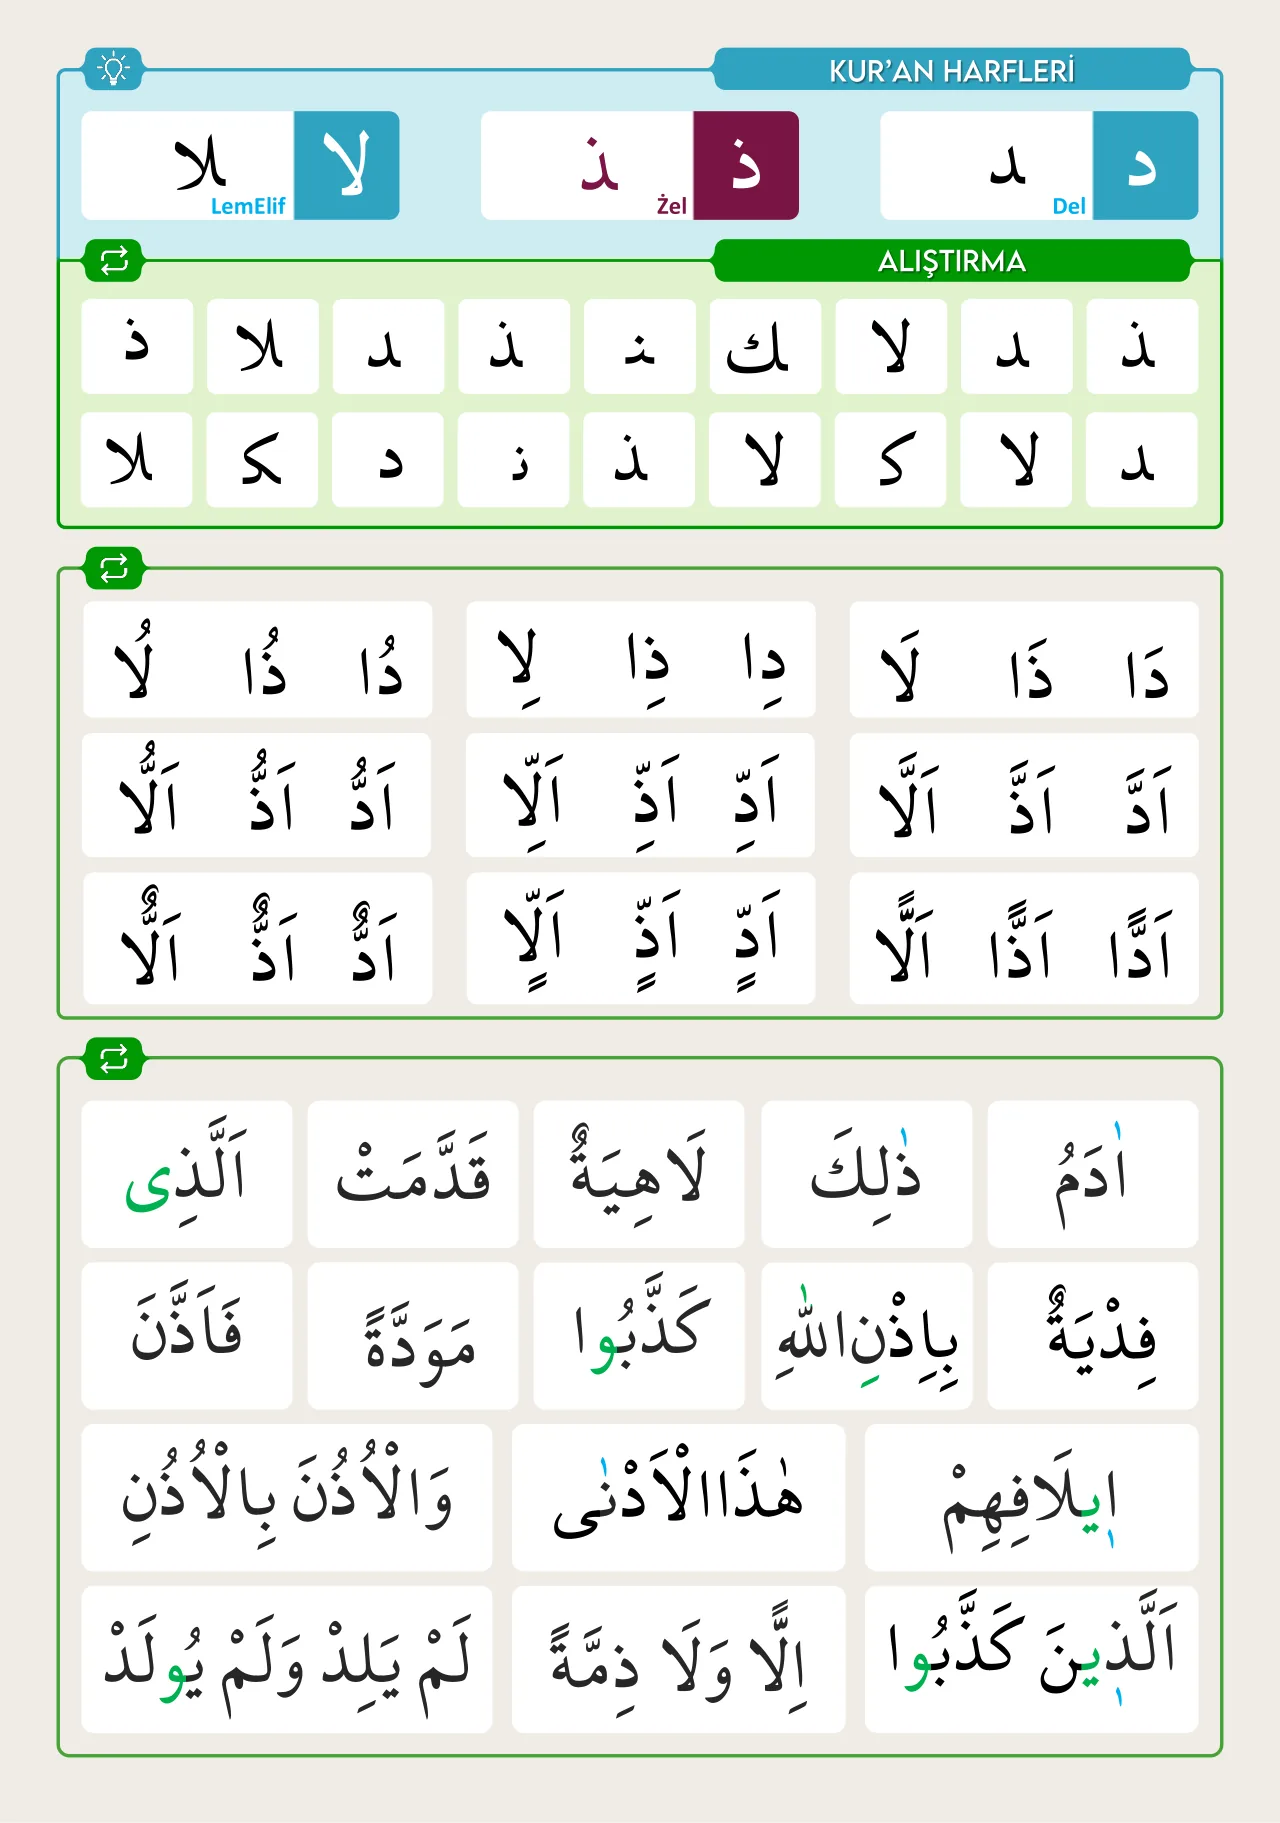 KUR'AN HARFLERİ
د ـد Del ذ ـذ Żel لا ـلا LemElif
ALIŞTIRMA
ـذ ـد لا ـك ـنـ ـذ ـد ـلا ذ
ـد لا كـ لا ـذ نـ د ـكـ ـلا
دَا ذَا لَا دِا ذِا لِا دُا ذُا لُا
اَدَّ اَذَّ اَلَّا اَدِّ اَذِّ اَلِّا اَدُّ اَذُّ اَلُّا
اَدًّا اَذًّا اَلًّا اَدٍّ اَذٍّ اَلٍّا اَدٌّ اَذٌّ اَلٌّا
اٰدَمُ ذٰلِكَ لَاهِيَةٌ قَدَّمَتْ اَلَّذِى
فِدْيَةٌ بِاِذْنِ اللّٰهِ كَذَّبُوا مَوَدَّةً فَاَذَّنَ
اٖيلَافِهِمْ هٰذَا الْاَدْنٰى وَالْاُذُنَ بِالْاُذُنِ
اَلَّذٖينَ كَذَّبُوا اِلًّا وَلَا ذِمَّةً لَمْ يَلِدْ وَلَمْ يُولَدْ